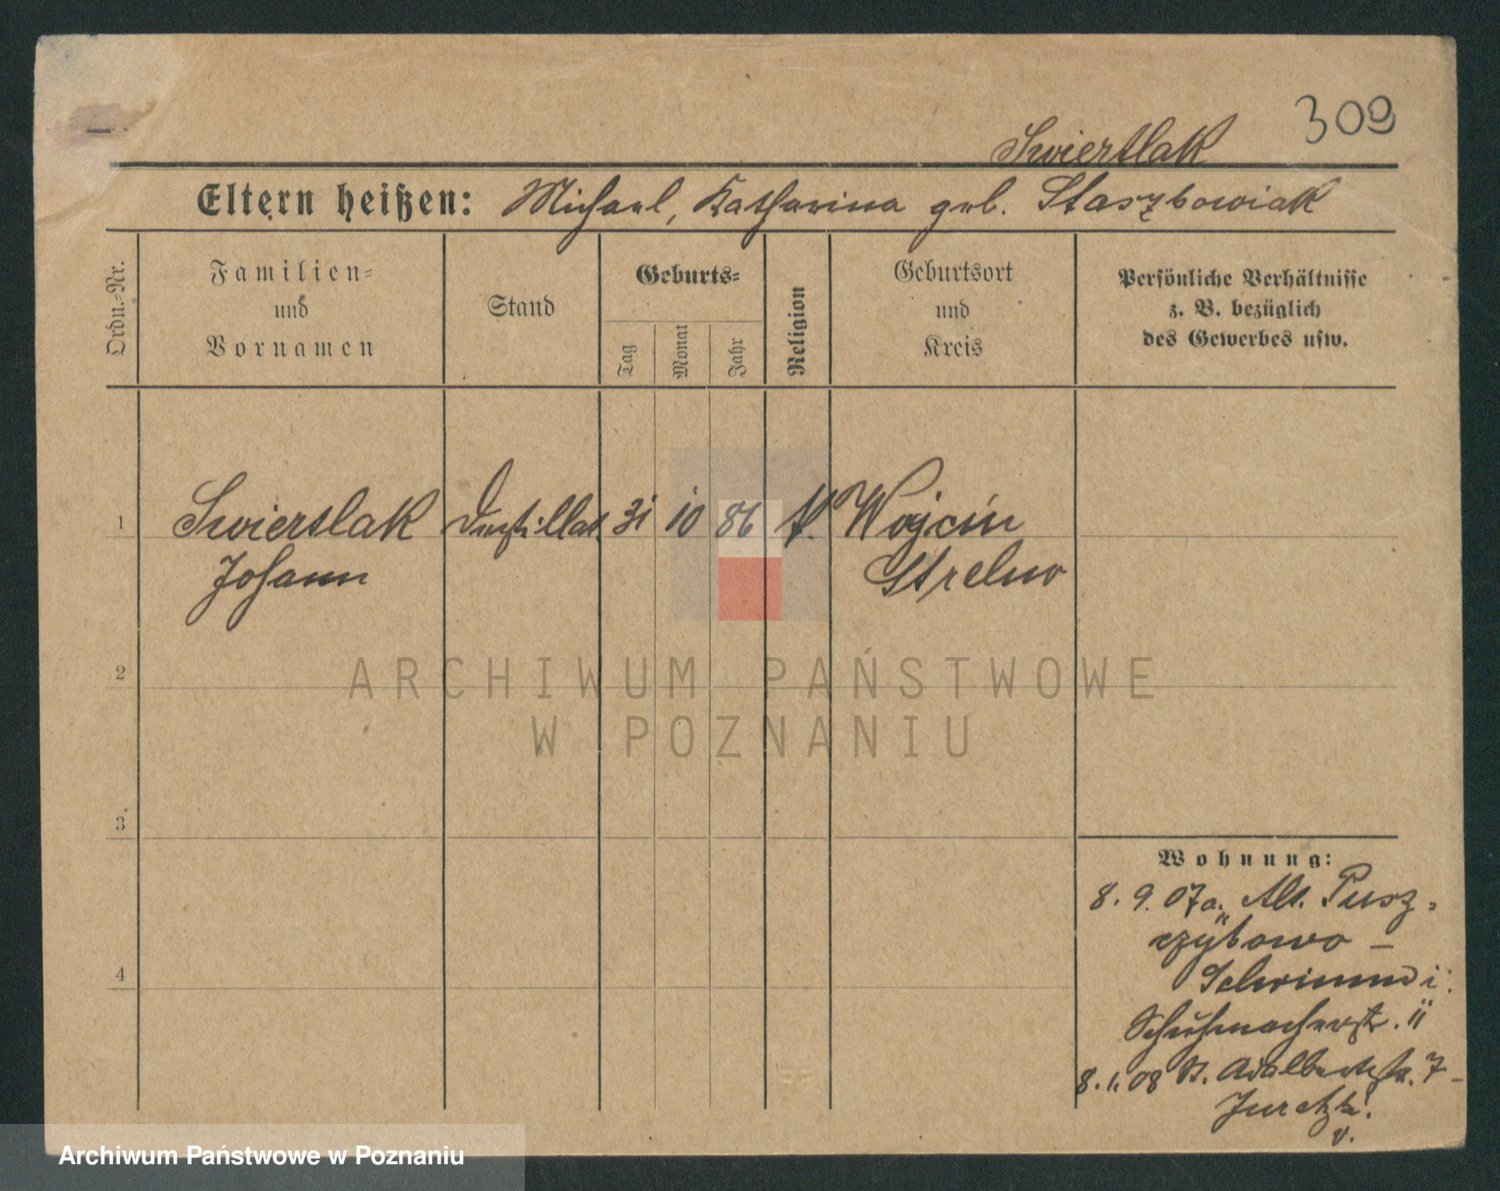 309
Swiertlak
Eltern heißen: Michael, Katharina geb. Staszkowiak
Ordn.-Nr.
Familien-
und
Vornamen
Stand
Geburts-
Tag
Monat
Jahr
Religion
Geburtsort
und
Kreis
Persönliche Verhältnisse
z. B. bezüglich
des Gewerbes usw.
1 Swierslak Destillat. 31 10 86 k. Wojcin
Johann Strelno
2
3.
4
Wohnung:
8. 9. 07 a.
Schuhmacherstr. 11
8. 1. 08 St. Adalbertstr. 7
ARCHIWUM PAŃSTWOWE
W POZNANIU
Archiwum Państwowe w Poznaniu